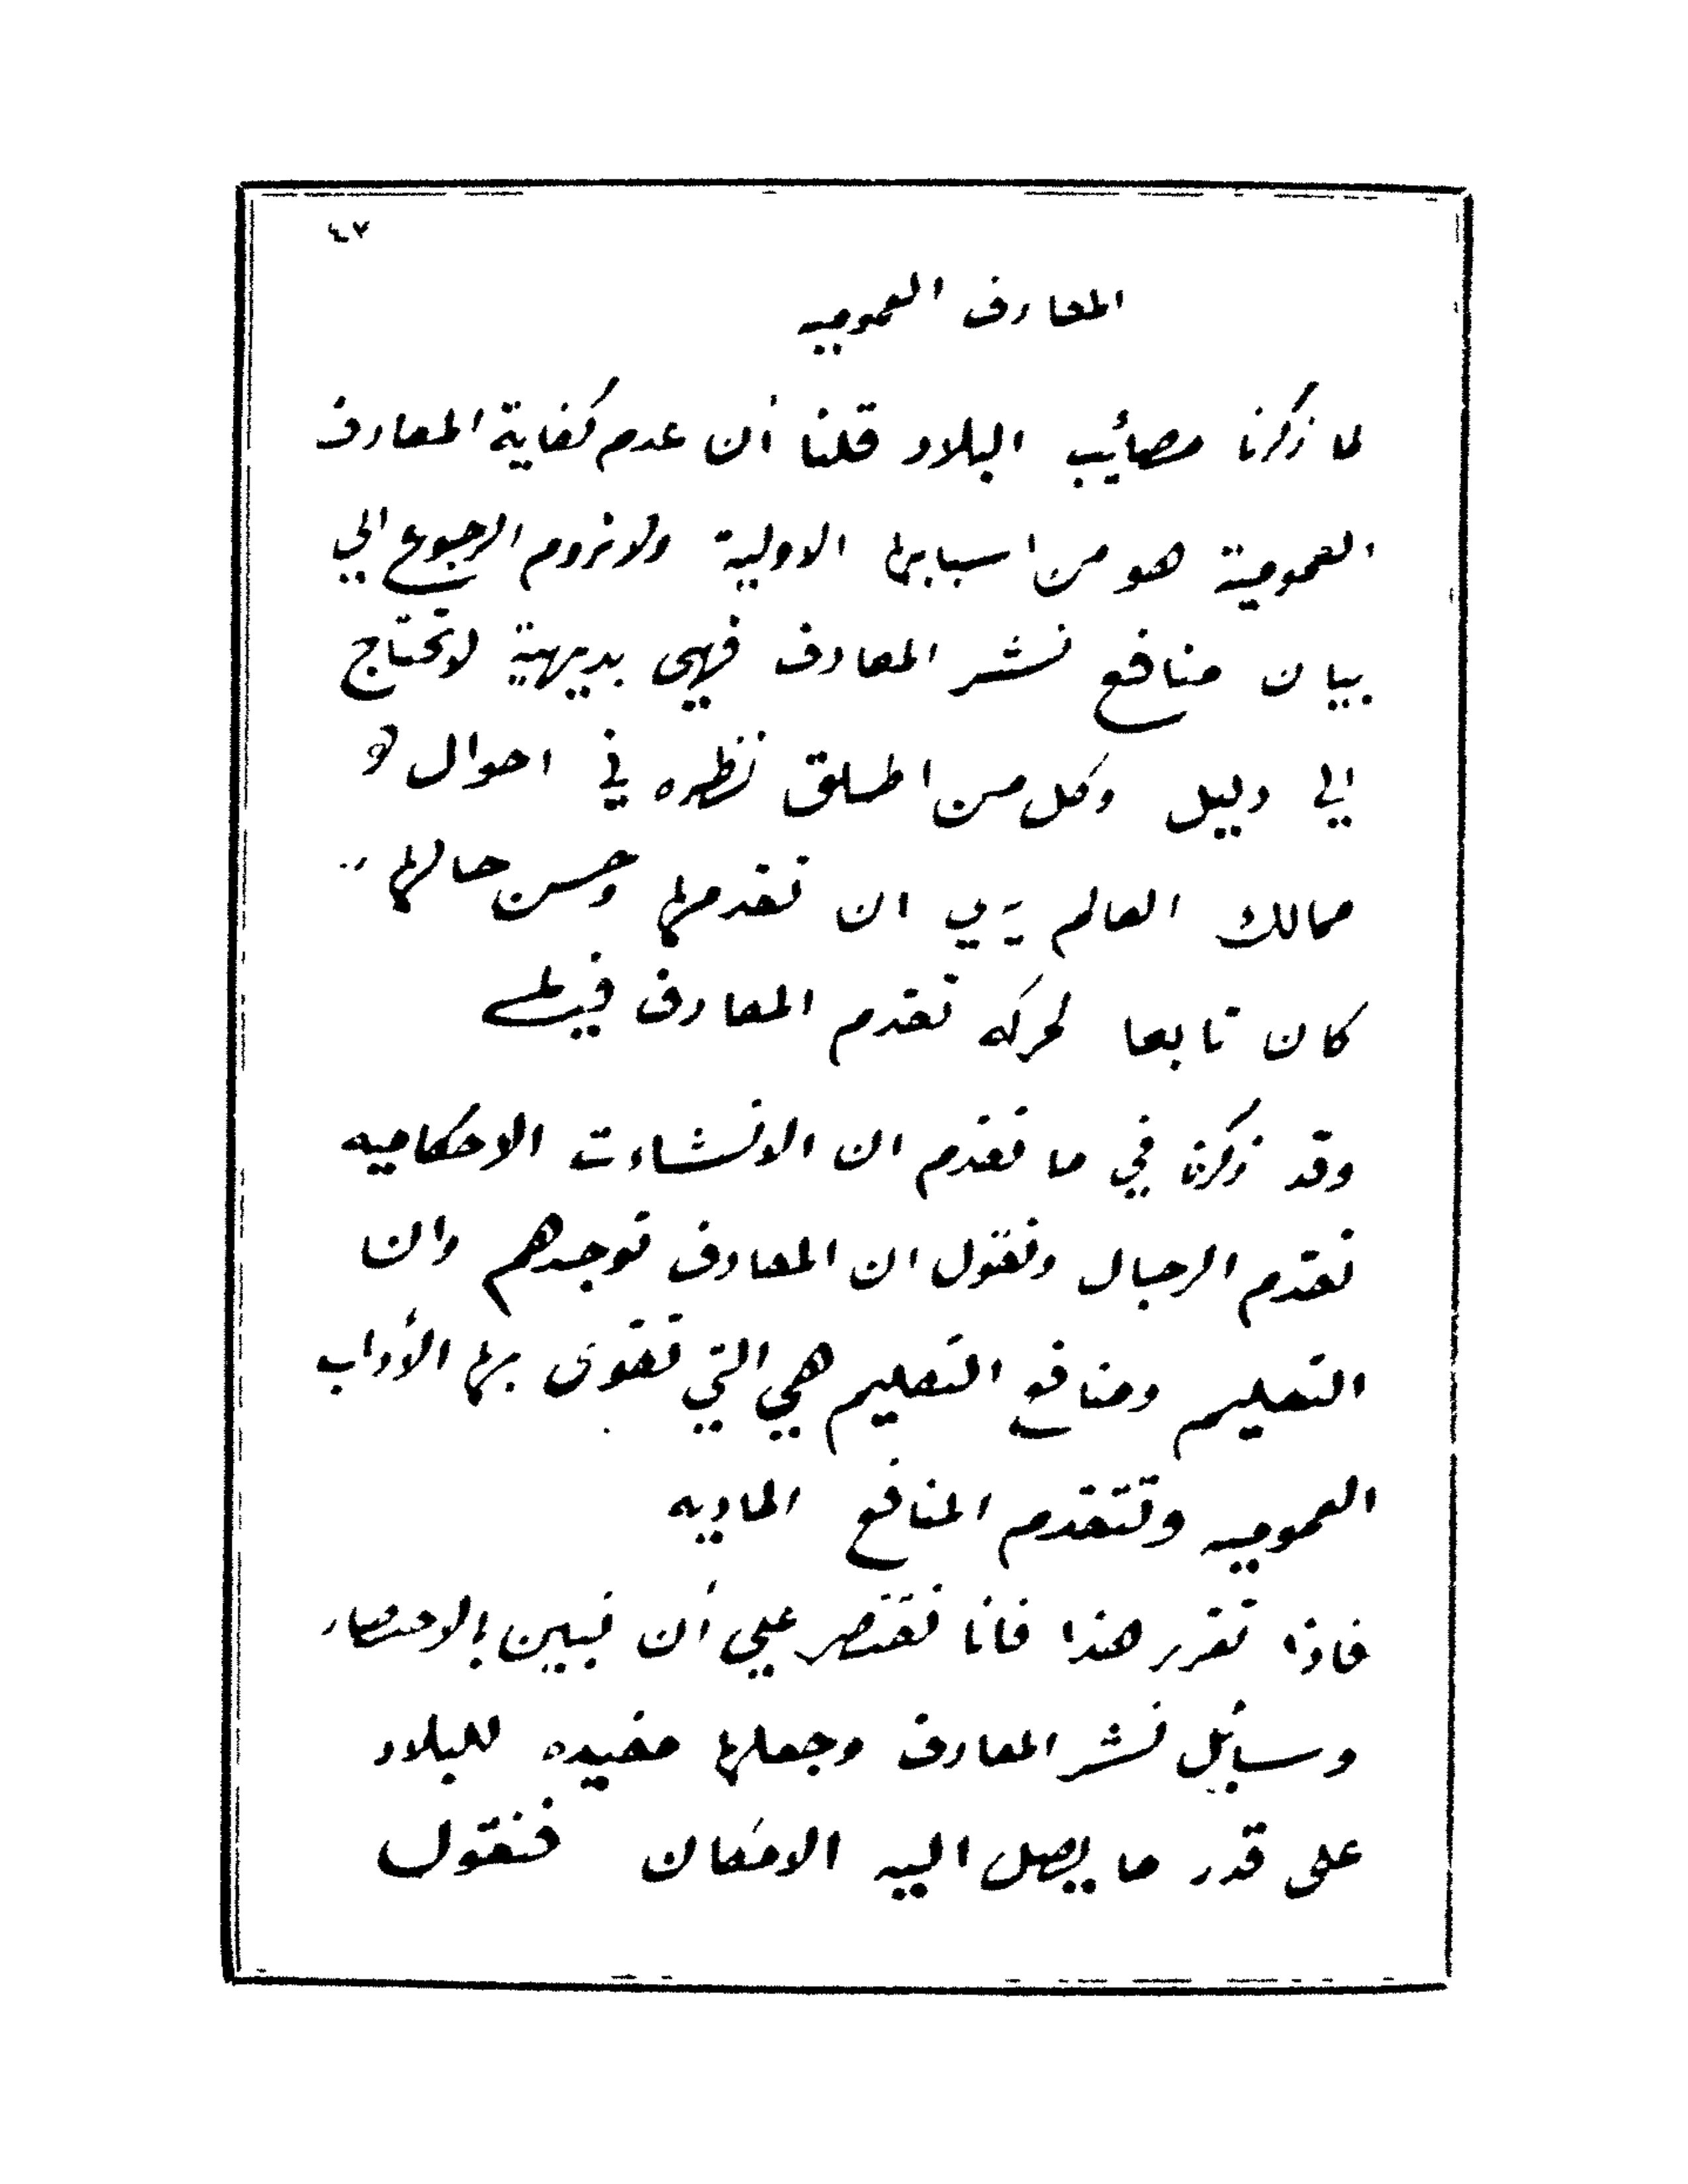 ٤٧
المعارف العموميه
لما ذكرنا مصائب البلاد قلنا أن عدم كفاية المعارف
العمومية هو من اسبابها الاولية ولا نروم الرجوع الي
بيان منافع نشر المعارف فهي بديهية لا تحتاج
الي دليل وكل من اطلق نظره في احوال
ممالك العالم يري ان تقدمها وحسن حالها
كان تابعا لحركه تقدم المعارف فيها
وقد ذكرنا في ما تقدم ان الانشاءت الاحكاميه
تقدم الرجال ونقول ان المعارف توجدهم وان
التعليم ومنافع التعليم هي التي تقوى بها الأداب
العموميه وتتقدم المنافع الماديه
فاذا تقرر هذا فانا نقتصر علي أن نبين بالاختصار
وسائل نشر المعارف وجعلها مفيده للبلاد
على قدر ما يصل اليه الامكان فنقول